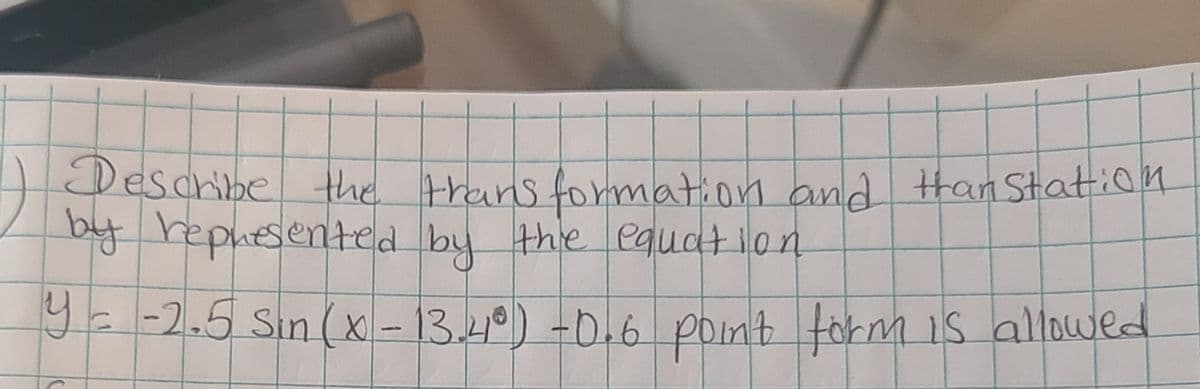 ) Describe the transformation and transtation
by represented by the equation
y = -2.5 sin(x - 13.4°) -0.6 point form is allowed